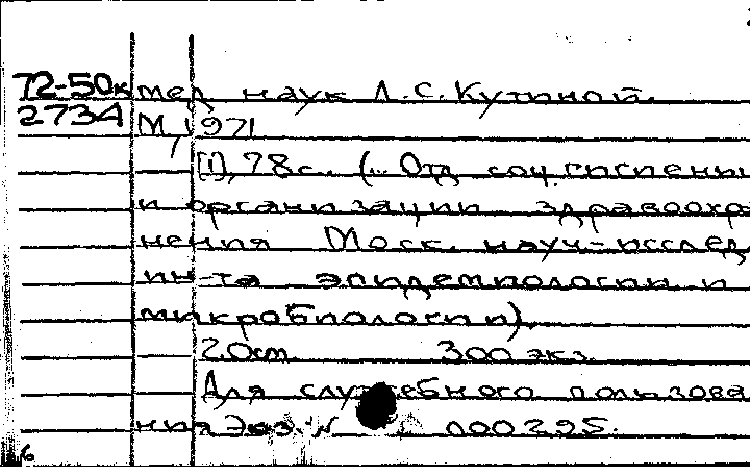 72-50к мед наук Л.С.Кутиной.
2734 М, 1971
[1], 78с. (... Отд соц. гигиены
и организации здравоохра
нения Моск. науч-исслед
ин-та эпидемиологии и
микробиологии).
20см. 300 экз.
Для служебного пользова
ния Экз. № 000295.